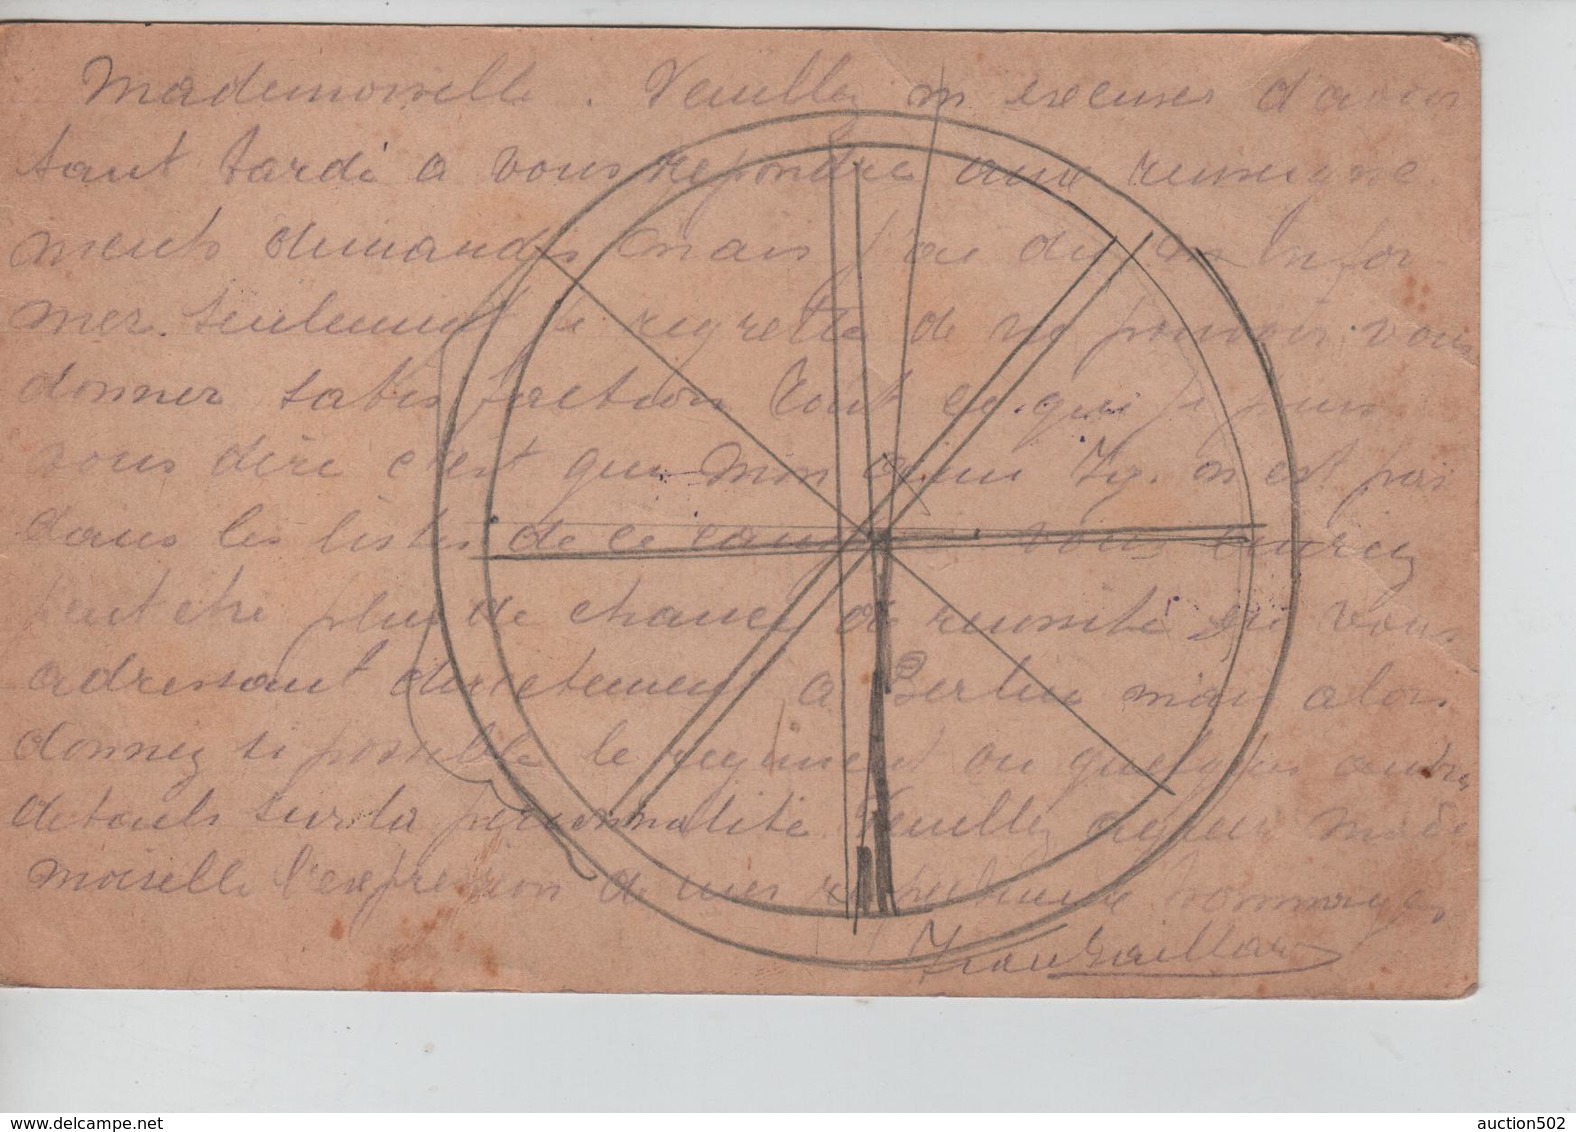 Mademoiselle. Veuillez m excuser d avoir
tant tardé a vous repondre aux renseigne
ments demandés mais j'ai du m infor
mer. Seulement je regrette de ne pouvoir vous
donner satisfaction Tout ce que je puis
vous dire c'est que n est pas
dans les listes de ce camp vous aurez
peut etre plus de chance de reussite en vous
adressant directement a Berlin mais alors
donnez si possible le regiment ou quelques autres
details sur la personnalité Veuillez agréer Made
moiselle l'expression de mes respectueux hommages
Gaillard
auction502